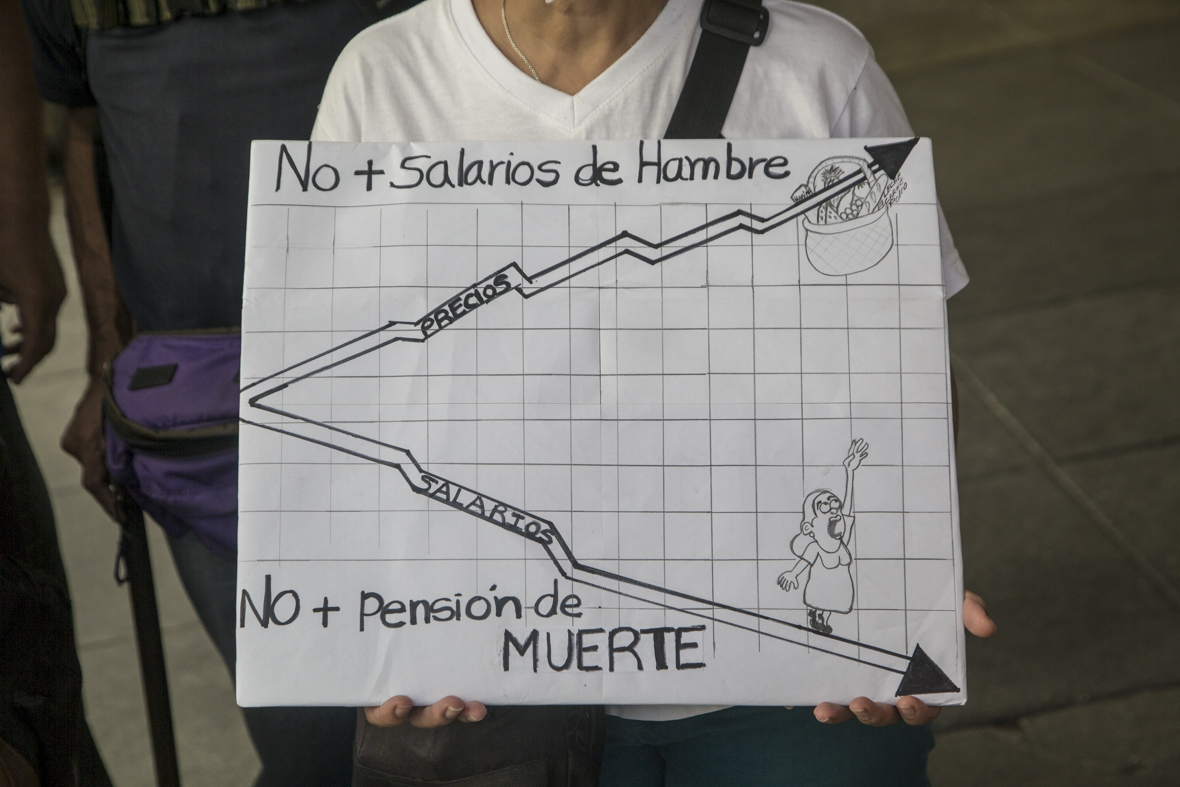 No + Salarios de Hambre
PRECIOS
SALARIOS
NO + pensión de
MUERTE